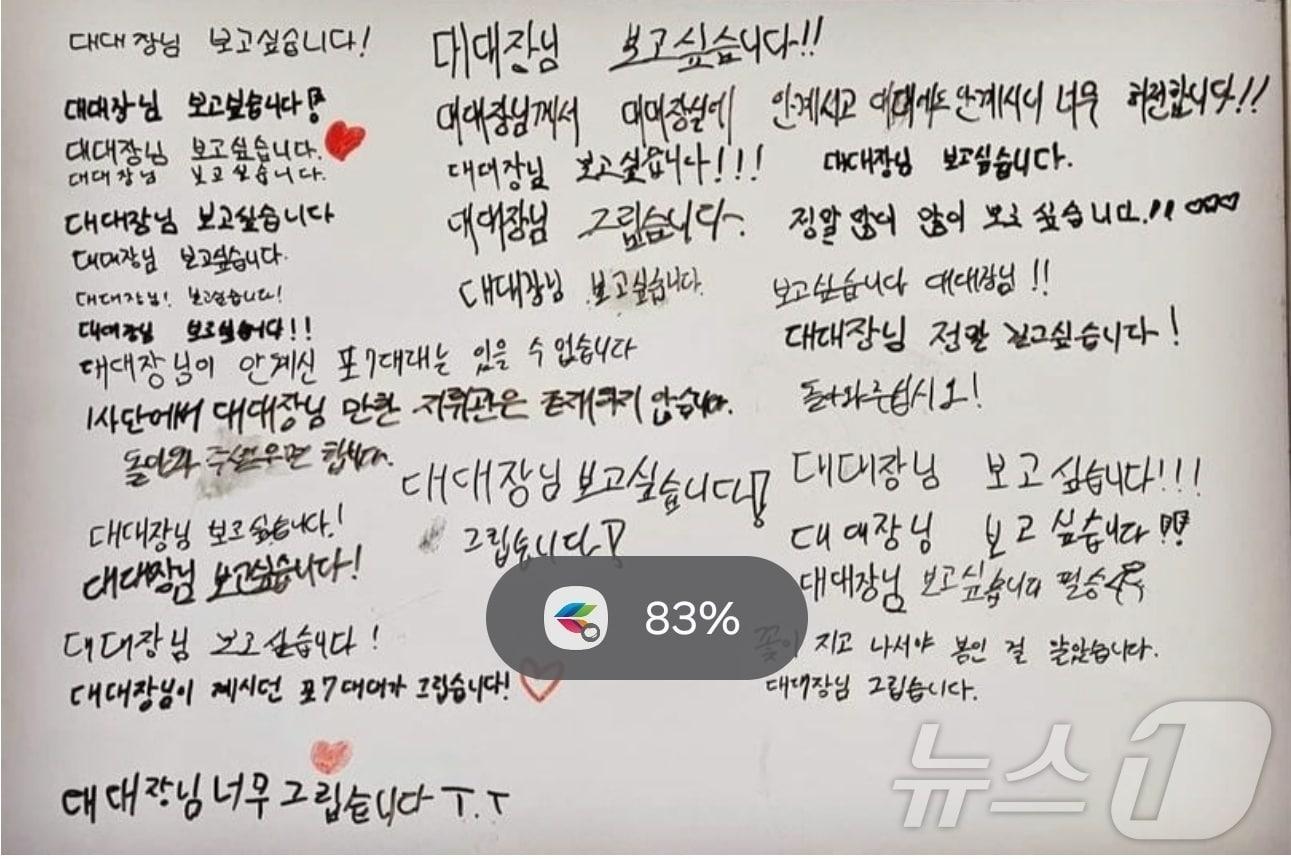 대대장님 보고싶습니다!
대대장님 보고싶습니다!
대대장님 보고싶습니다.
대대장님 보고싶습니다.
대대장님 보고싶습니다
대대장님 보고싶습니다.
대대장님! 보고싶습니다!
대대장님 보고싶습니다!!
대대장님이 안계신 포7대대는 있을 수 없습니다
1사단에써 대대장님 만한 지휘관은 존재하지 않습니다.
돌아와 주셨으면 합니다.
대대장님 보고싶습니다!
대대장님 보고싶습니다!
대대장님 보고싶습니다!
대대장님이 계시던 포7대대가 그립습니다!
대대장님 너무 그립습니다 ㅜ.ㅜ
대대장님 보고싶습니다!!
대대장님께서 대대장실에 안계시고 대대에도 안계시니 너무 허전합니다!!
대대장님 보고싶습니다!!!
대대장님 보고싶습니다.
대대장님 그립습니다~
정말 많이 많이 보고 싶습니다.!!
대대장님 보고싶습니다.
보고싶습니다 대대장님!!
대대장님 정말 보고싶습니다!
돌아와주십시오!
대대장님 보고싶습니다!
그립습니다!
대대장님 보고싶습니다!!!
대대장님 보고싶습니다!!
대대장님 보고싶습니다 필승
꽃이 지고 나서야 봄인 걸 알았습니다.
대대장님 그립습니다.
83%
뉴스1